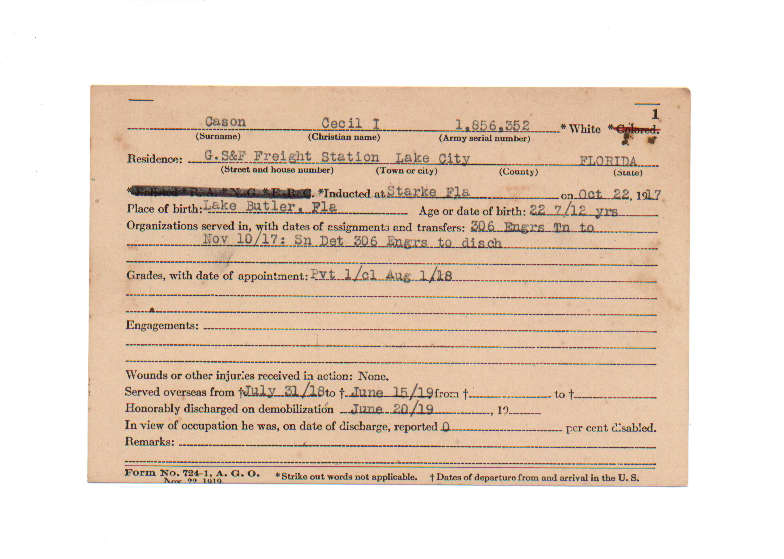 1
Cason Cecil I 1,856,352 * White * Colored.
(Surname) (Christian name) (Army serial number)
Residence: G.S&F Freight Station Lake City FLORIDA
(Street and house number) (Town or city) (County) (State)
* R. A. * N. G. * E. R. C. *Inducted at Starke Fla on Oct 22, 1917
Place of birth: Lake Butler, Fla Age or date of birth: 22 7/12 yrs
Organizations served in, with dates of assignments and transfers: 306 Engrs Tn to
Nov 10/17: Sn Det 306 Engrs to disch
Grades, with date of appointment: Pvt 1/cl Aug 1/18
Engagements:
Wounds or other injuries received in action: None.
Served overseas from † July 31/18 to † June 15/19 from † to †
Honorably discharged on demobilization June 20/19 , 19
In view of occupation he was, on date of discharge, reported 0 per cent disabled.
Remarks:
Form No. 724-1, A. G. O. *Strike out words not applicable. † Dates of departure from and arrival in the U. S.
Nov. 22, 1919